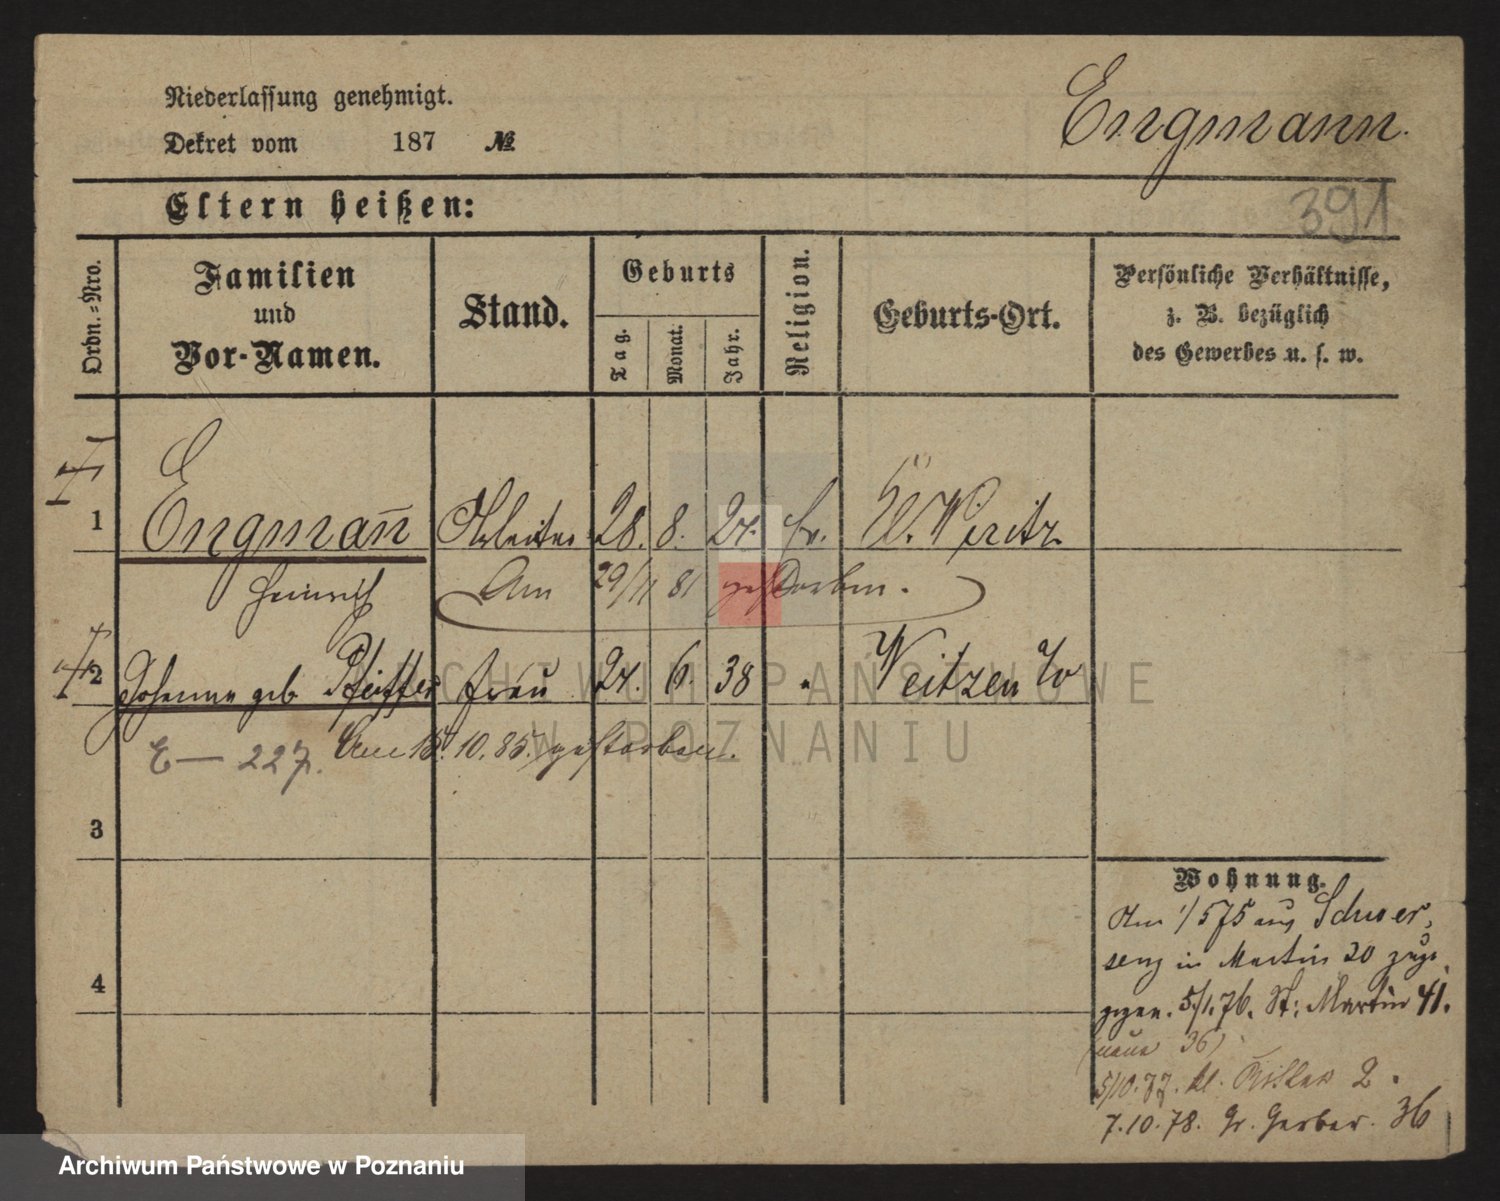 Niederlassung genehmigt.
Dekret vom 187 №
Engmann.
Eltern heißen:
391
Ordn.-Nro.
Familien und Vor-Namen.
Stand.
Geburts
Tag.
Monat.
Jahr.
Religion.
Geburts-Ort.
Persönliche Verhältnisse,
z. B. bezüglich
des Gewerbes u. s. w.
1 Engmañ Arbeiter 28. 8. 27. W.
Heinrich Am 29/11 81 gestorben.
2 Johanna geb Pfeiffer Frau 27. 6. 38 " Weitzen
E — 227. Am 15. 10. 85. gestorben.
3
4
Wohnung.
Am 1/575 aus Schwer,
senz in Martin 20 zuge,
zogen. 5/1.76. St: Martin 41.
(neue 36)
5/10.77. kl. Ritter 2.
7.10.78. Gr. Gerber. 36
ARCHIWUM PAŃSTWOWE
W POZNANIU
Archiwum Państwowe w Poznaniu